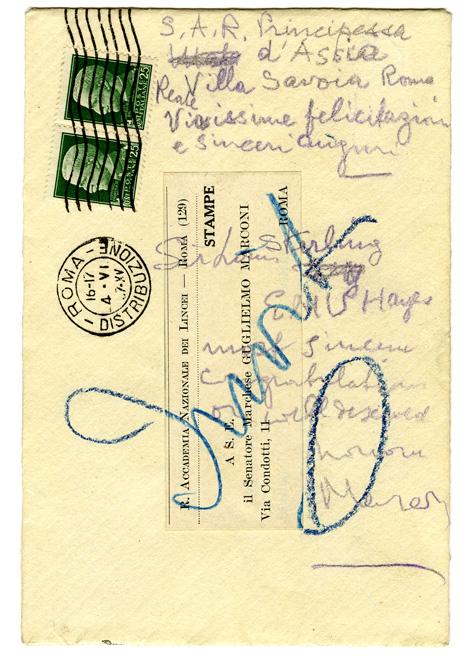 S. A. R. Principessa
d'Assia
Villa Savoia Roma
Reale
Vivissime felicitazioni
e sinceri auguri
25
25
ROMA - DISTRIBUZIONE
16-17
4 - VI
-XV
R. ACCADEMIA NAZIONALE DEI LINCEI — ROMA (129)
STAMPE
A S. E.
il Senatore Marchese GUGLIELMO MARCONI
Via Condotti, 11
ROMA
Sir Louis Sterling
EMI Hayes
most sincere
Congratulations
on well deserved
honour
Marconi